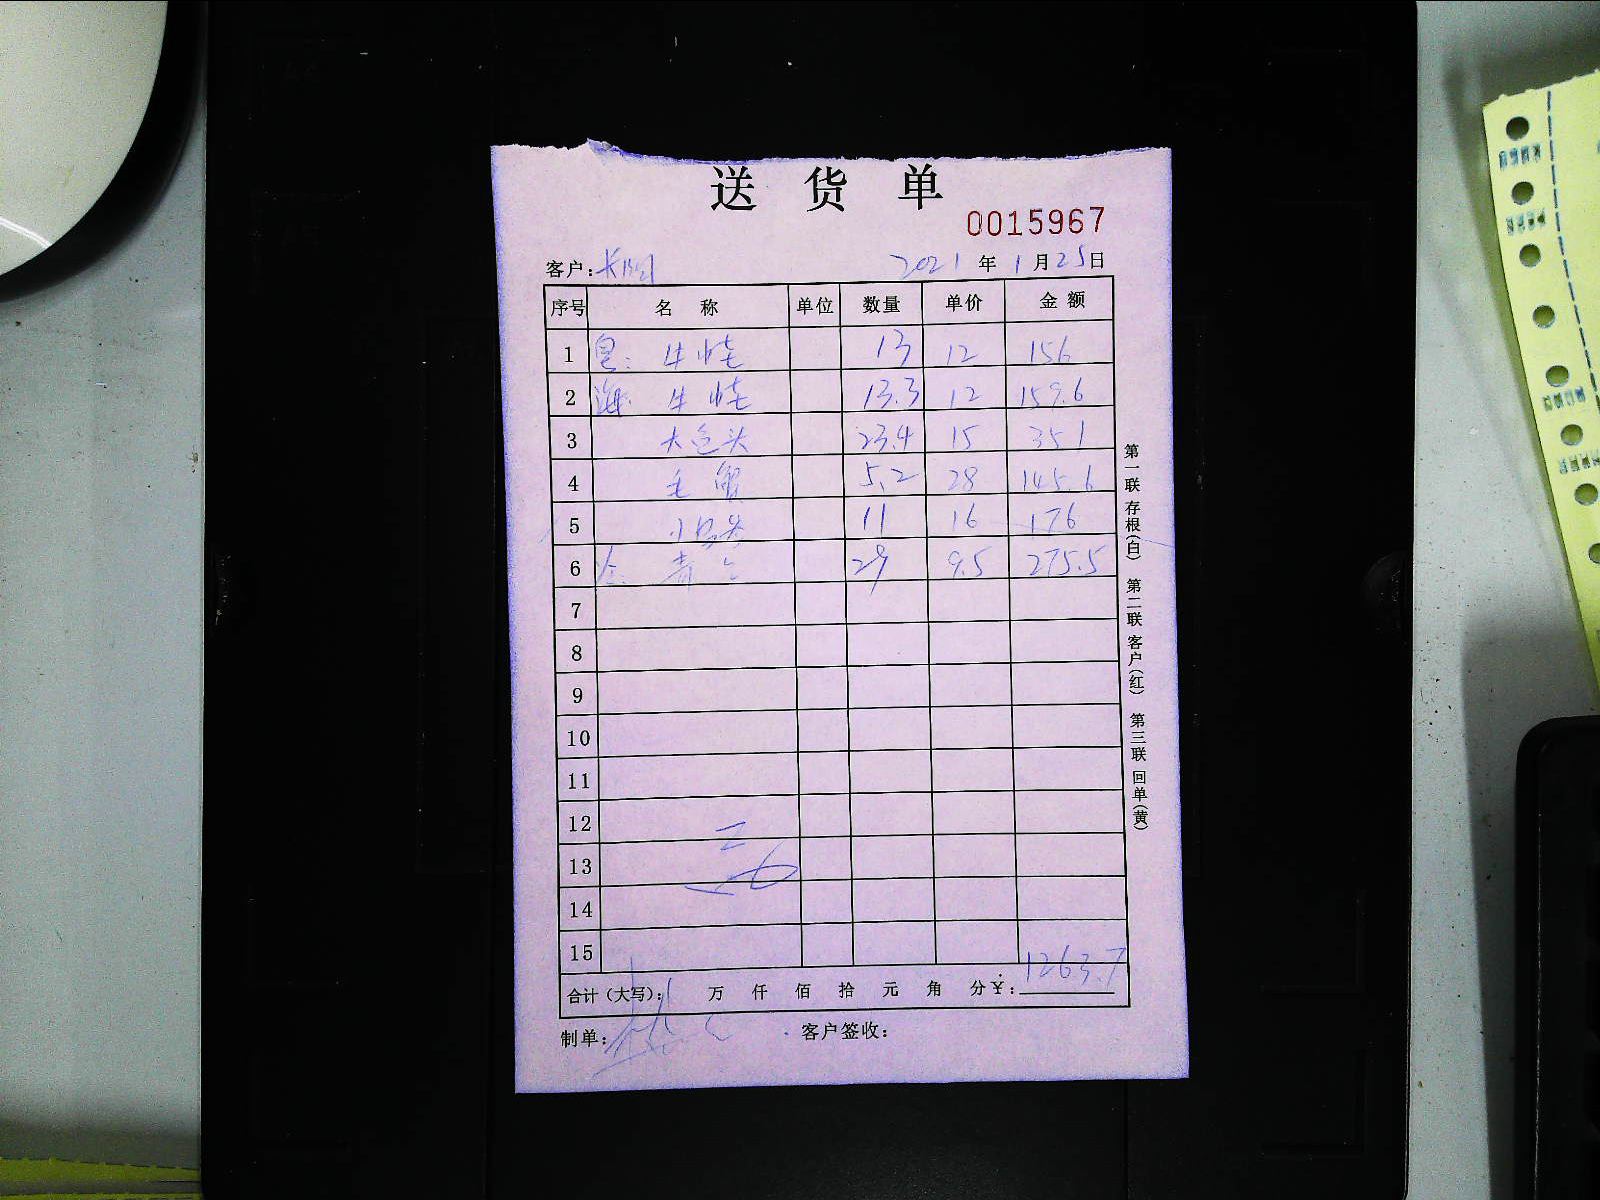 送货单
0015967
客户: 2021年1月25日
序号 名称 单位 数量 单价 金额
1 牛 13 12 156
2 海 牛 13.3 12 159.6
3 大 头 23.4 15 351
4 毛蟹 5.2 28 145.6
5 小 11 16 176
6 青 29 9.5 275.5
7
8
9
10
11
12
13
14
15
合计(大写): 万 仟 佰 拾 元 角 分 ¥: 1263.7
制单: 客户签收:
第一联存根(白) 第二联客户(红) 第三联回单(黄)